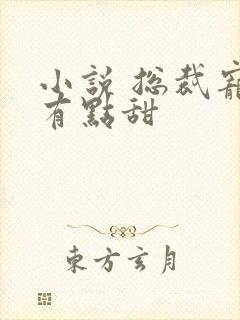 小説 总裁寵
有點甜
東方玄月